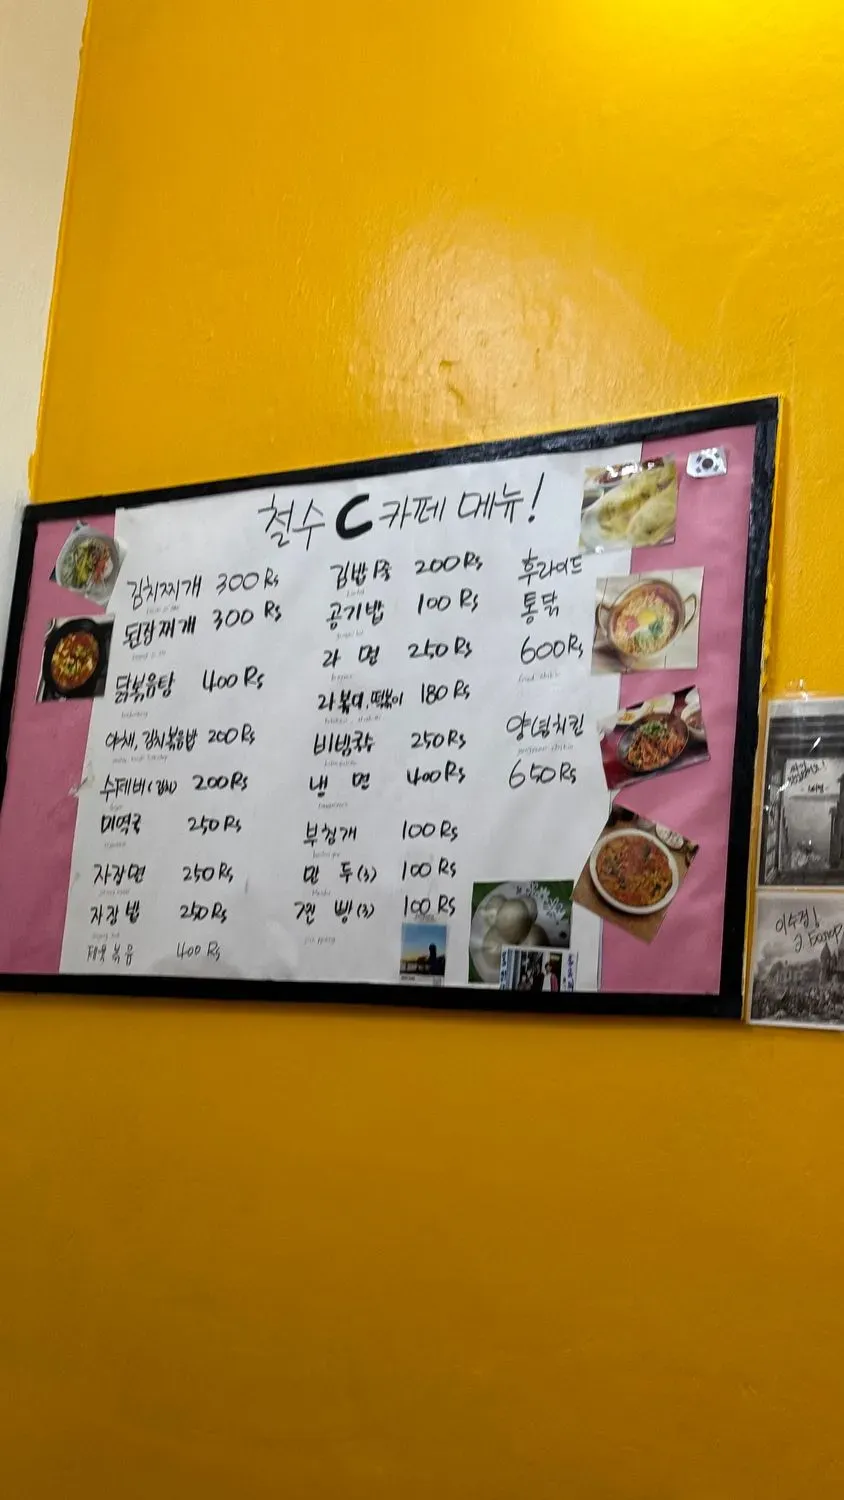 철수 C 카페 메뉴!
김치찌개 300 Rs
된장찌개 300 Rs
닭볶음탕 400 Rs
야채, 김치볶음밥 200 Rs
수제비 200 Rs
미역국 250 Rs
자장면 250 Rs
자장밥 250 Rs
제육볶음 400 Rs
김밥 1줄 200 Rs
공기밥 100 Rs
라면 250 Rs
라볶이, 떡볶이 180 Rs
비빔국수 250 Rs
냉면 400 Rs
부침개 100 Rs
만두(3) 100 Rs
찐빵(3) 100 Rs
후라이드
통닭
600 Rs
양념치킨
650 Rs